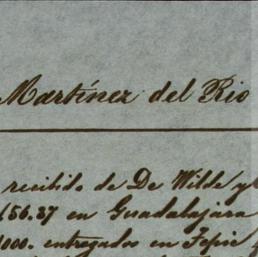 Martínez del Rio
recibido de De Wilde y
656.37 en Guadalajara
1000. entregados en Tepic